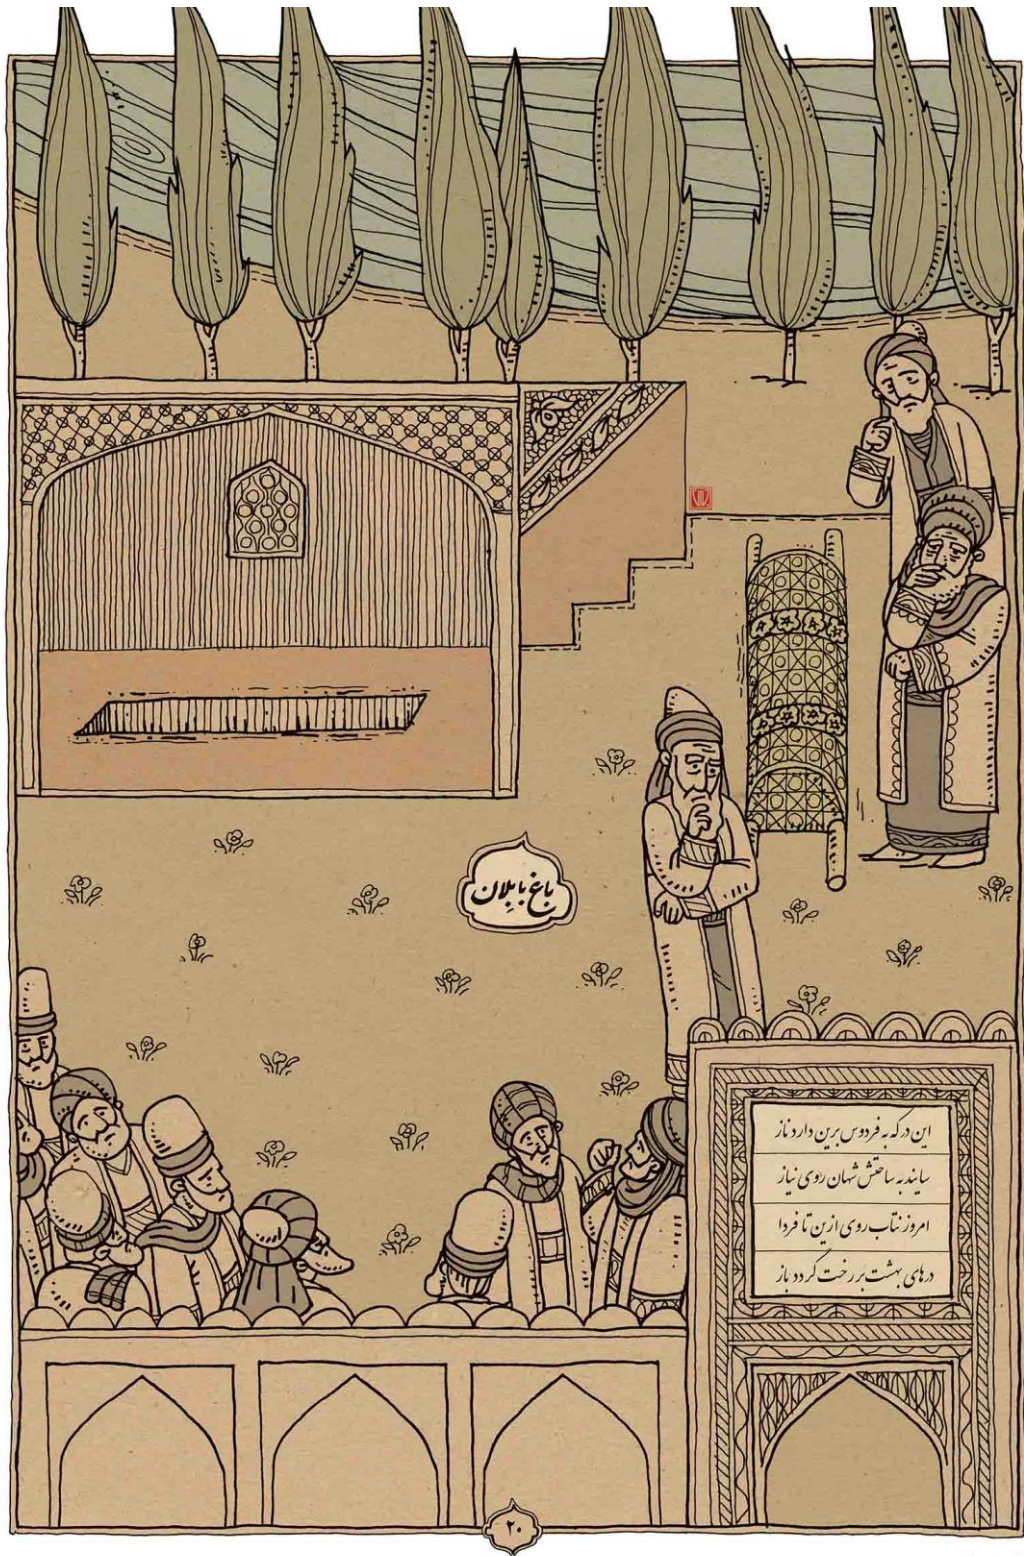 باغ بابلان
این درگه به فردوس برین دارد ناز
سایند به ساحتش شهان روی نیاز
امروز متاب روی ازین تا فردا
درهای بهشت بر رخت گردد باز
۲۰